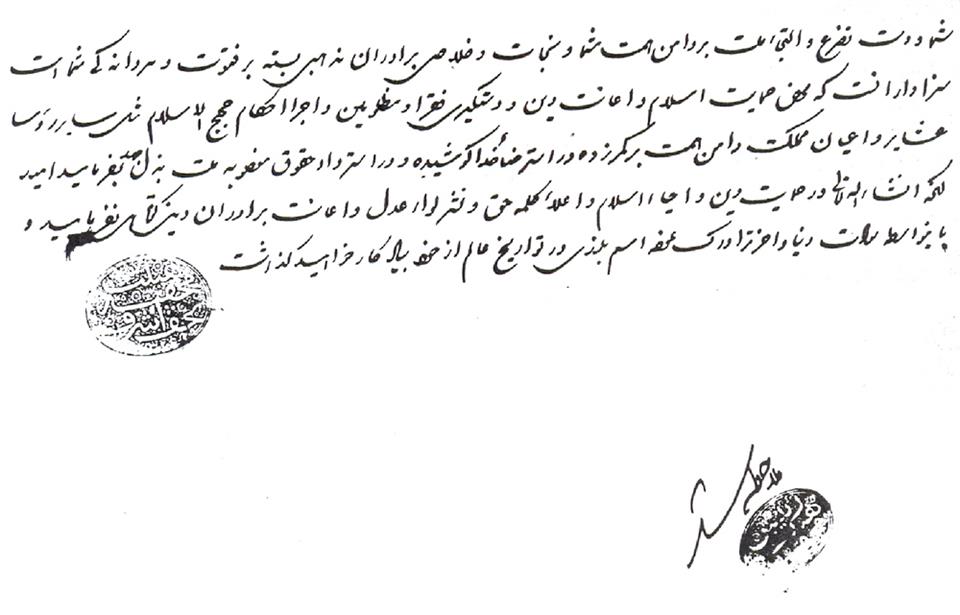 شما و دست تضرع و التجاء ملت بر دامن همت شما و نجات و خلاصی برادران مذهبی بسته بر فتوت و مردانگی شما است
سزاوار آنست که محض حمایت اسلام و اعانت دین و دستگیری فقرا و مظلومین و اجراء احکام حجج الاسلام مثل سایر رؤسا
عشایر و اعیان مملکت دامن همت بر کمر زده و در استرضاء خدا کوشیده و در استرداد حقوق مغصوبه ملت بذل جهد بفرمایید امید
بلکه انشاءالله تعالی در حمایت دین و احیاء اسلام و اعلاء کلمه حق و نشر لواء عدل و اعانت برادران دینی کوتاهی نفرمایید و
دنیا و آخرت را درک نموده اسم بلندی در تواریخ عالم از خود بیادگار خواهید گذاشت